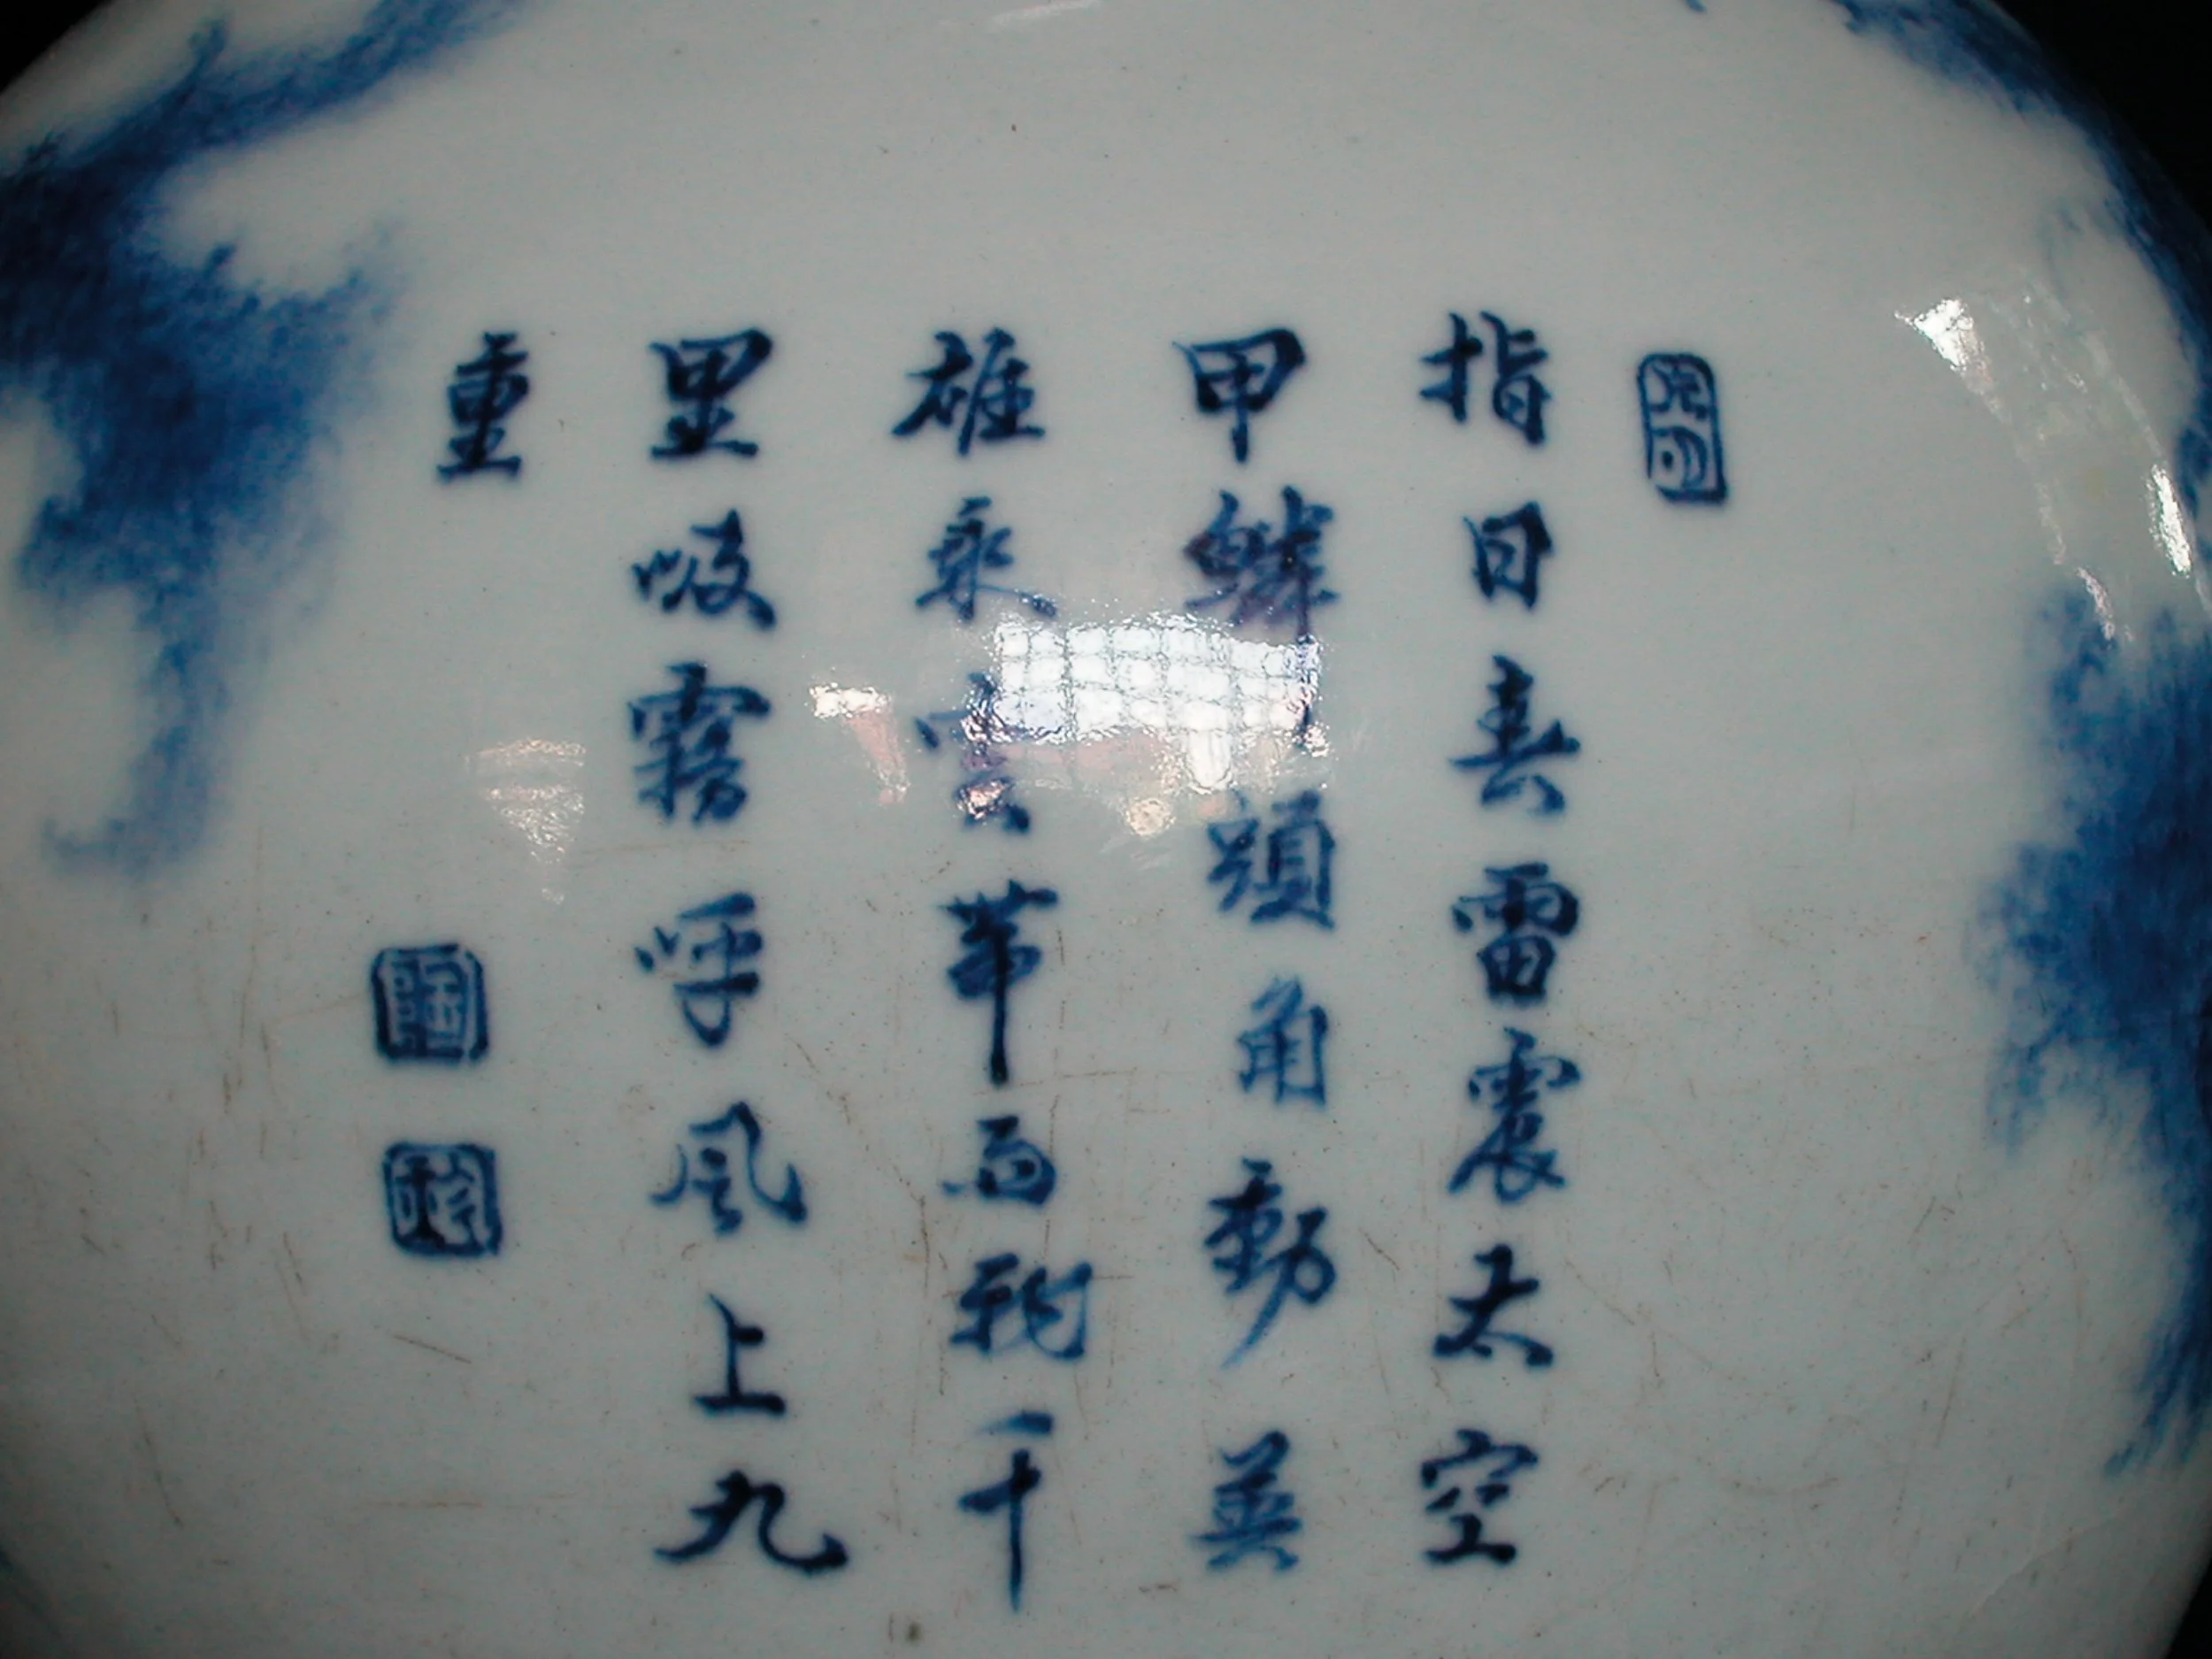 指日春雷震太空
甲鱗頭角動英
雄乘雲帶雨飛千
里吸霧呼風上九
重